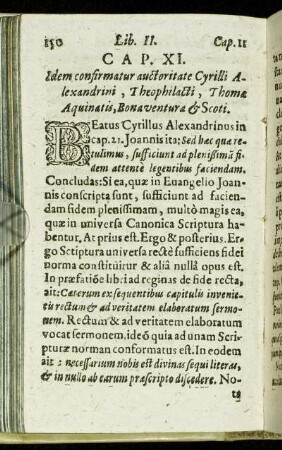 150 Lib. II. Cap. 11
CAP. XI.
Idem confirmatur auctoritate Cyrilli A-
lexandrini, Theophilacti, Thomæ
Aquinatis, Bonaventuræ & Scoti.
BEatus Cyrillus Alexandrinus in
cap. 21. Joannis ita: Sed hæc quæ re-
tulimus, sufficiunt ad plenissimã fi-
dem attentè legentibus faciendam.
Concludas: Si ea, quæ in Euangelio Joan-
nis conscripta sunt, sufficiunt ad facien-
dam fidem plenissimam, multò magis ea,
quæ in universa Canonica Scriptura ha-
bentur. At prius est. Ergo & posterius. Er-
go Sctiptura universa rectè sufficiens fidei
norma constituitur & aliâ nullâ opus est.
In præfatiõe lib: i ad reginas de fide recta,
ait: Cæterum ex sequentibus capitulis invenie-
tis rectum & ad veritatem elaboratum sermo-
nem. Rectum & ad veritatem elaboratum
vocat sermonem, ideò quia ad unam Scri-
pturæ norman conformatus est. In eodem
ait: necessarium nobis est divinas sequi literas,
& in nullo ab earum præscripto discedere. No-
te